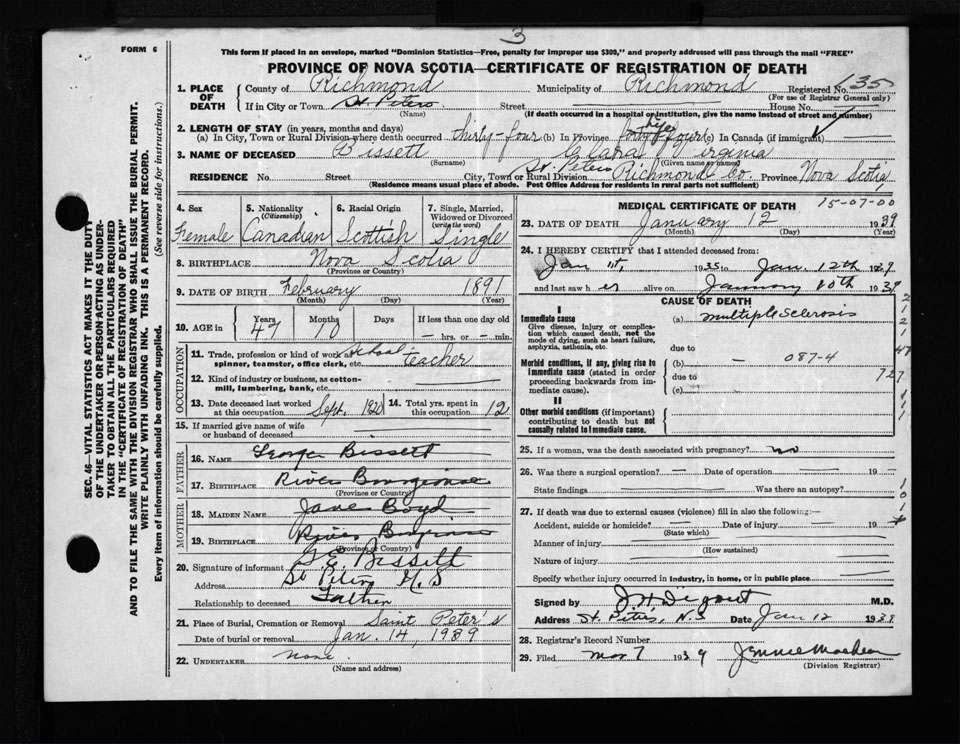 3
FORM 6
This form if placed in an envelope, marked "Dominion Statistics—Free, penalty for improper use $300," and properly addressed will pass through the mail "FREE"
PROVINCE OF NOVA SCOTIA—CERTIFICATE OF REGISTRATION OF DEATH
SEC. 46—VITAL STATISTICS ACT MAKES IT THE DUTY
OF THE UNDERTAKER OR PERSON ACTING AS UNDER-
TAKER TO OBTAIN ALL THE PARTICULARS REQUIRED
IN THE "CERTIFICATE OF REGISTRATION OF DEATH"
AND TO FILE THE SAME WITH THE DIVISION REGISTRAR WHO SHALL ISSUE THE BURIAL PERMIT.
WRITE PLAINLY WITH UNFADING INK. THIS IS A PERMANENT RECORD.
Every item of information should be carefully supplied. (See reverse side for instructions.)
1. PLACE OF DEATH County of Richmond Municipality of Richmond Registered No. 135
(For use of Registrar General only)
If in City or Town St. Peters Street House No.
(Name) (If death occurred in a hospital or institution, give the name instead of street and number)
2. LENGTH OF STAY (in years, months and days)
(a) In City, Town or Rural Division where death occurred thirty-four (b) In Province life forty-four (c) In Canada (if immigrant)
3. NAME OF DECEASED Bissett Clara Virginia
(Surname) (Given name or names)
RESIDENCE No. Street City, Town or Rural Division St. Peters Richmond Co. Province Nova Scotia
(Residence means usual place of abode. Post Office Address for residents in rural parts not sufficient)
4. Sex
Female
5. Nationality
(Citizenship)
Canadian
6. Racial Origin
Scottish
7. Single, Married,
Widowed or Divorced
(write the word)
Single
8. BIRTHPLACE Nova Scotia
(Province or Country)
9. DATE OF BIRTH February 1891
(Month) (Day) (Year)
10. AGE in Years 47 Months 10 Days If less than one day old
— hrs. or — min.
OCCUPATION
11. Trade, profession or kind of work as school teacher
spinner, teamster, office clerk, etc.
12. Kind of industry or business, as cotton-
mill, lumbering, bank, etc.
13. Date deceased last worked
at this occupation Sept. 1920
14. Total yrs. spent in
this occupation 12
15. If married give name of wife
or husband of deceased
FATHER
16. NAME George Bissett
17. BIRTHPLACE River Bourgeoise
(Province or Country)
MOTHER
18. MAIDEN NAME Jane Boyd
19. BIRTHPLACE River
(Province or Country)
20. Signature of informant G.E. Bissett
Address St Peters N.S
Relationship to deceased Father
21. Place of Burial, Cremation or Removal Saint Peter's
Date of burial or removal Jan. 14, 1939
22. UNDERTAKER none
(Name and address)
MEDICAL CERTIFICATE OF DEATH
15-07-00
23. DATE OF DEATH January 12 1939
(Month) (Day) (Year)
24. I HEREBY CERTIFY that I attended deceased from:
Jan 1st, 1935 to Jan. 12th 1939
and last saw her alive on January 10th 1939
CAUSE OF DEATH
I
Immediate cause (a) multiple sclerosis
Give disease, injury or complica-
tion which caused death, not the
mode of dying, such as heart failure,
asphyxia, asthenia, etc.
due to
087-4
Morbid conditions, if any, giving rise to
immediate cause (stated in order
proceeding backwards from im-
mediate cause).
(b) —
due to
(c)
II
Other morbid conditions (if important)
contributing to death but not
causally related to immediate cause.
25. If a woman, was the death associated with pregnancy? no
26. Was there a surgical operation? — Date of operation — 19 —
State findings Was there an autopsy?
27. If death was due to external causes (violence) fill in also the following:—
Accident, suicide or homicide? — Date of injury — 19
(State which)
Manner of injury
(How sustained)
Nature of injury
Specify whether injury occurred in industry, in home, or in public place
Signed by M.D.
Address St. Peters, N.S Date Jan 12 1939
28. Registrar's Record Number
29. Filed Mar 7 1939
(Division Registrar)